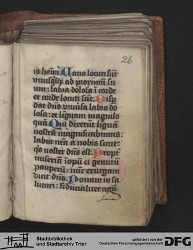 26
is hoım̄ Uana locuti sūt
vnusq̄sq̨ ad proximū su
um: labia dolosa ī corde
et corde locuti sūt. Disp
dat dn̄s vniūsa labia do
losa: et liguam magnilo
quā Qui dixerūt liguam
nostrā magnificabimus
labia nrā a nobis sunt:
q̄s noster dn̄s est. Propt̄
miseriā inopū et gemitū
paupeꝝ: nūc exurgam
dicit dn̄s. Ponam in sa
lutari: fiducialiter agā
Stadtbibliothek
und Stadtarchiv Trier
gefördert von der
Deutschen Forschungsgemeinschaft
DFG